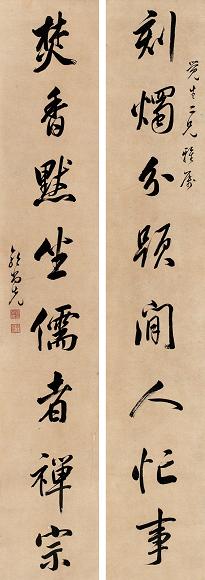 覺生二兄雅屬
刻燭分題閒人忙事
焚香默坐儒者禪宗
郭尚先